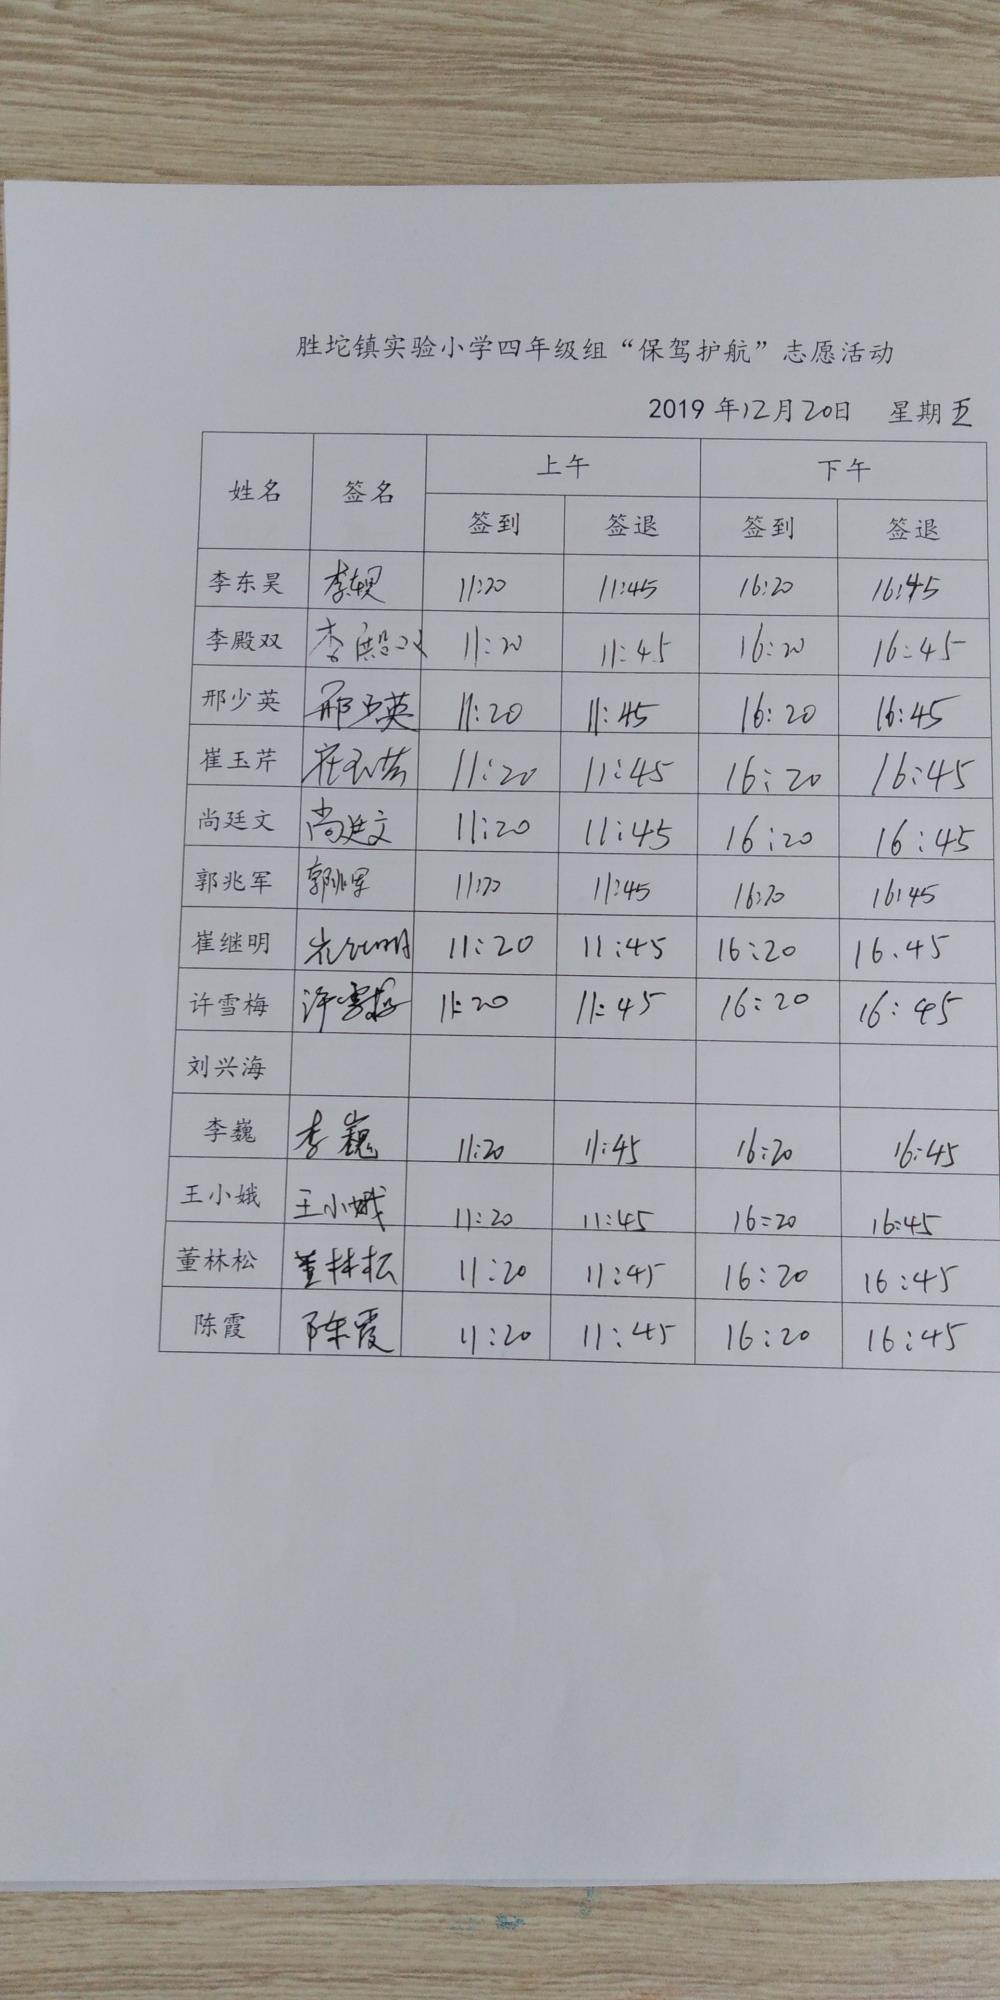 胜坨镇实验小学四年级组“保驾护航”志愿活动
2019 年12月20日 星期五
姓名 签名 上午 下午
签到 签退 签到 签退
李东昊 李东昊 11:20 11:45 16:20 16:45
李殿双 李殿双 11:20 11:45 16:20 16:45
邢少英 邢少英 11:20 11:45 16:20 16:45
崔玉芹 崔玉芹 11:20 11:45 16:20 16:45
尚廷文 尚廷文 11:20 11:45 16:20 16:45
郭兆军 郭兆军 11:20 11:45 16:20 16:45
崔继明 崔继明 11:20 11:45 16:20 16.45
许雪梅 许雪梅 11:20 11:45 16:20 16:45
刘兴海
李巍 李巍 11:20 11:45 16:20 16:45
王小娥 王小娥 11:20 11:45 16:20 16:45
董林松 董林松 11:20 11:45 16:20 16:45
陈霞 陈霞 11:20 11:45 16:20 16:45